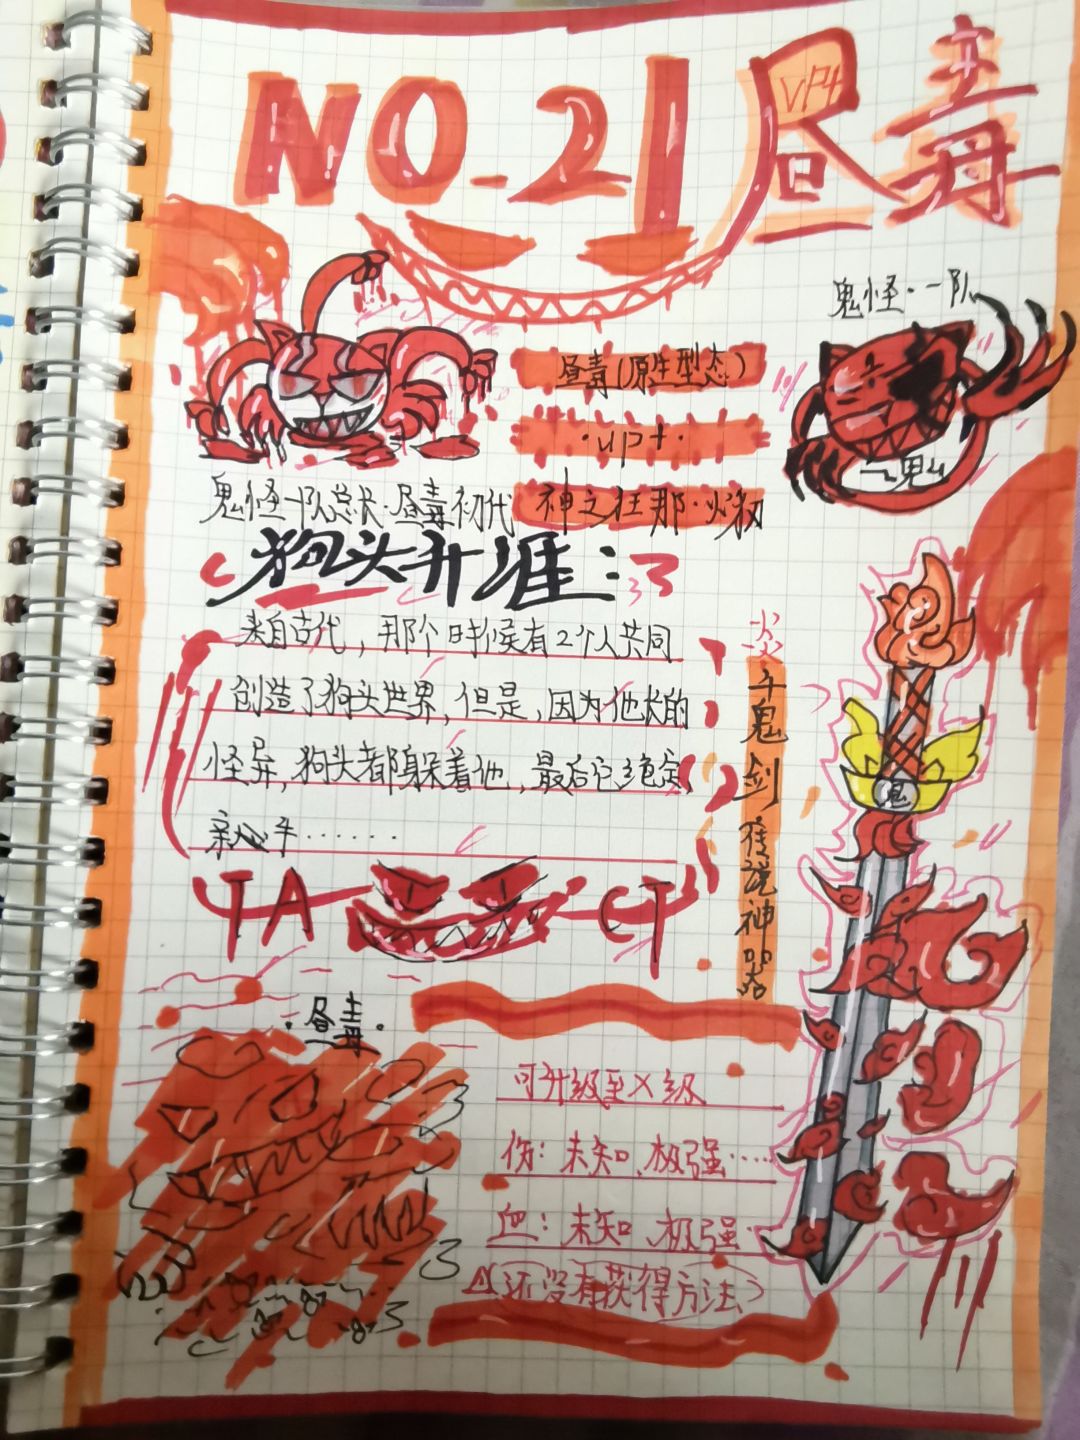 NO.21 昼毒
VP4
鬼怪·一队
昼毒(原生型态)
·up+·
鬼怪一队总长·昼毒初代
神之狂那·火
狗头升涯:
来自古代，那个时候有2个人共同
创造了狗头世界，但是，因为他长的
怪异，狗头都躲着他，最后它绝定
亲手······
火焱
千鬼剑
传说神器
鬼
TA CT
·昼毒·
可升级至X级
伤：未知、极强·····
血：未知、极强·
(还没有获得方法)